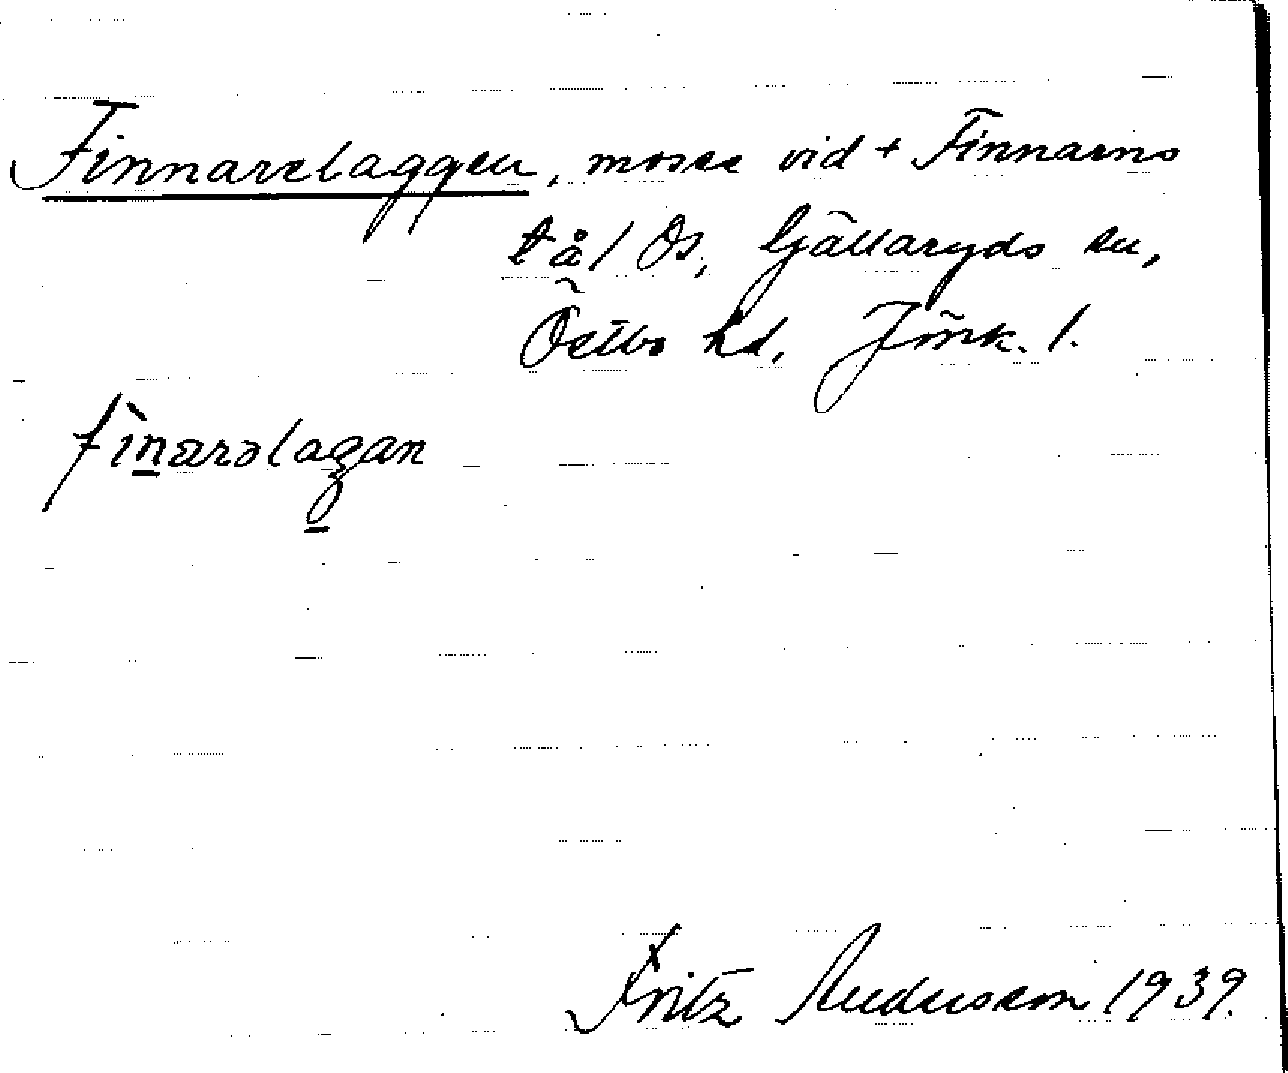 Finnarelaggen, mosse vid + Finnarns
tå / Os, Gjällaryds sn,
Östbo hd. Jönk. l.
finarəlagan
Fritz Andersson 1939.